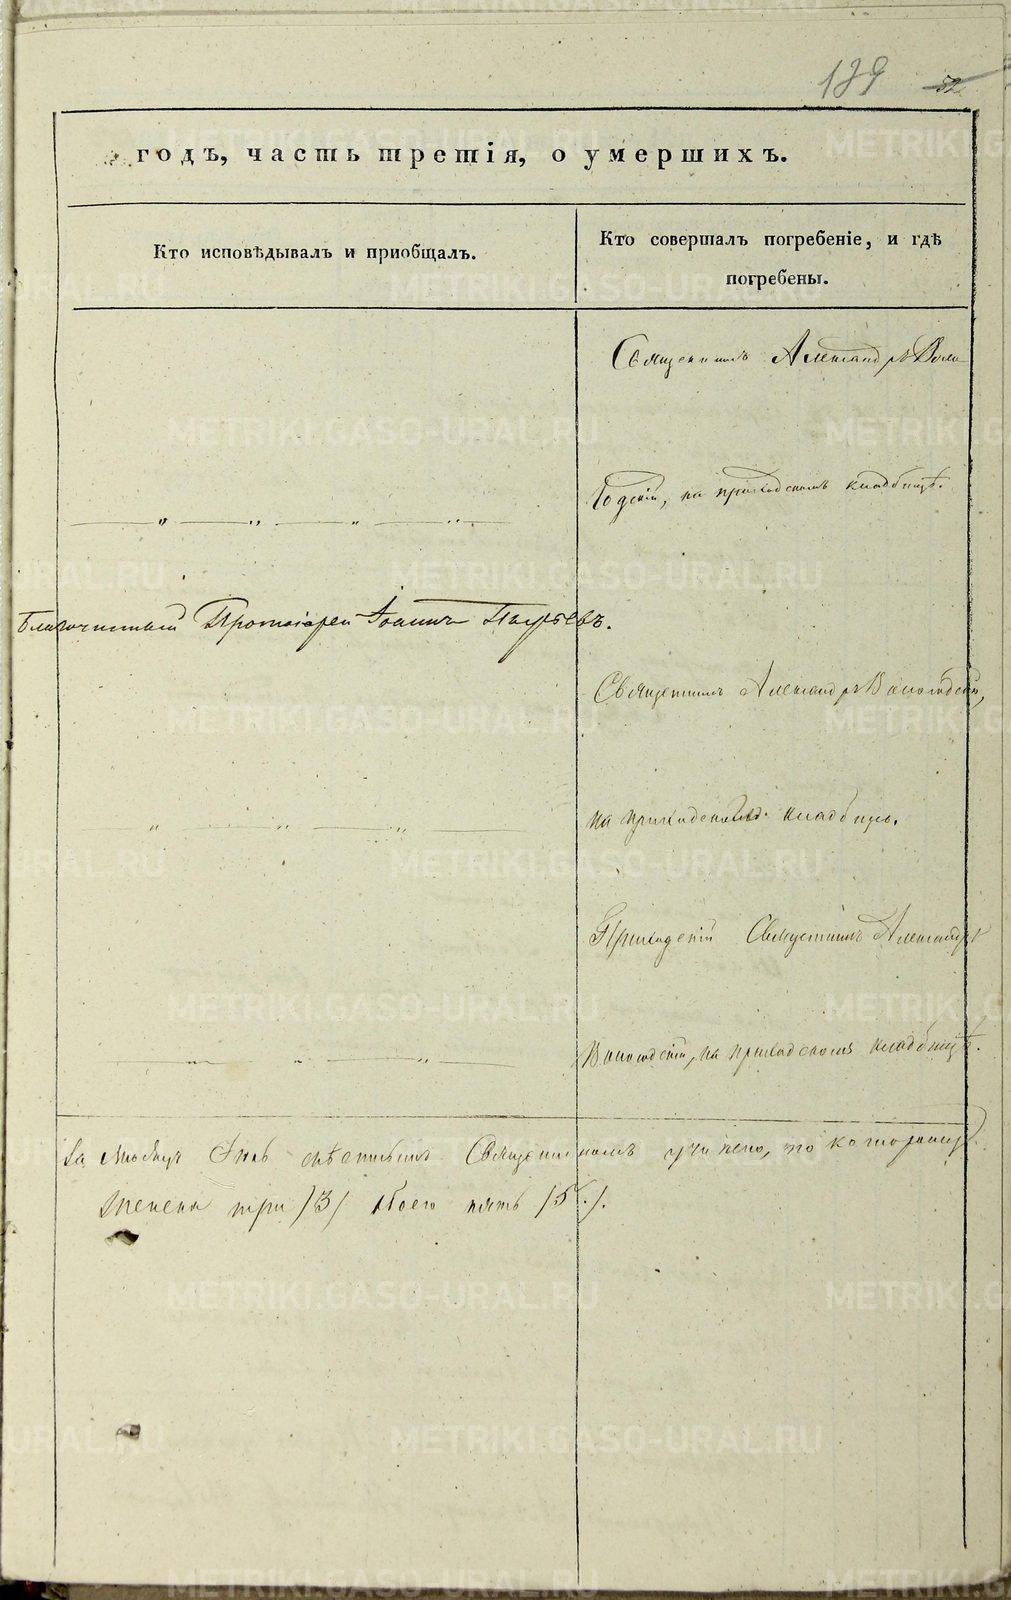 139 52
годъ, часть третія, о умершихъ.
Кто исповѣдывалъ и приобщалъ.
Кто совершалъ погребеніе, и гдѣ
погребены.
Священникъ Александръ Воло
годскій, на приходскомъ кладбищѣ.
Благочинный Протоіерей Іоаннъ
Священникъ Александръ Вологодскій,
на приходскомъ кладбищѣ.
Приходскій Священникъ Александръ
Вологодскій, на приходскомъ кладбищѣ.
Священникомъ по которому
женска три /3/ обоего пять /5./.
METRIKI.GASO-URAL.RU